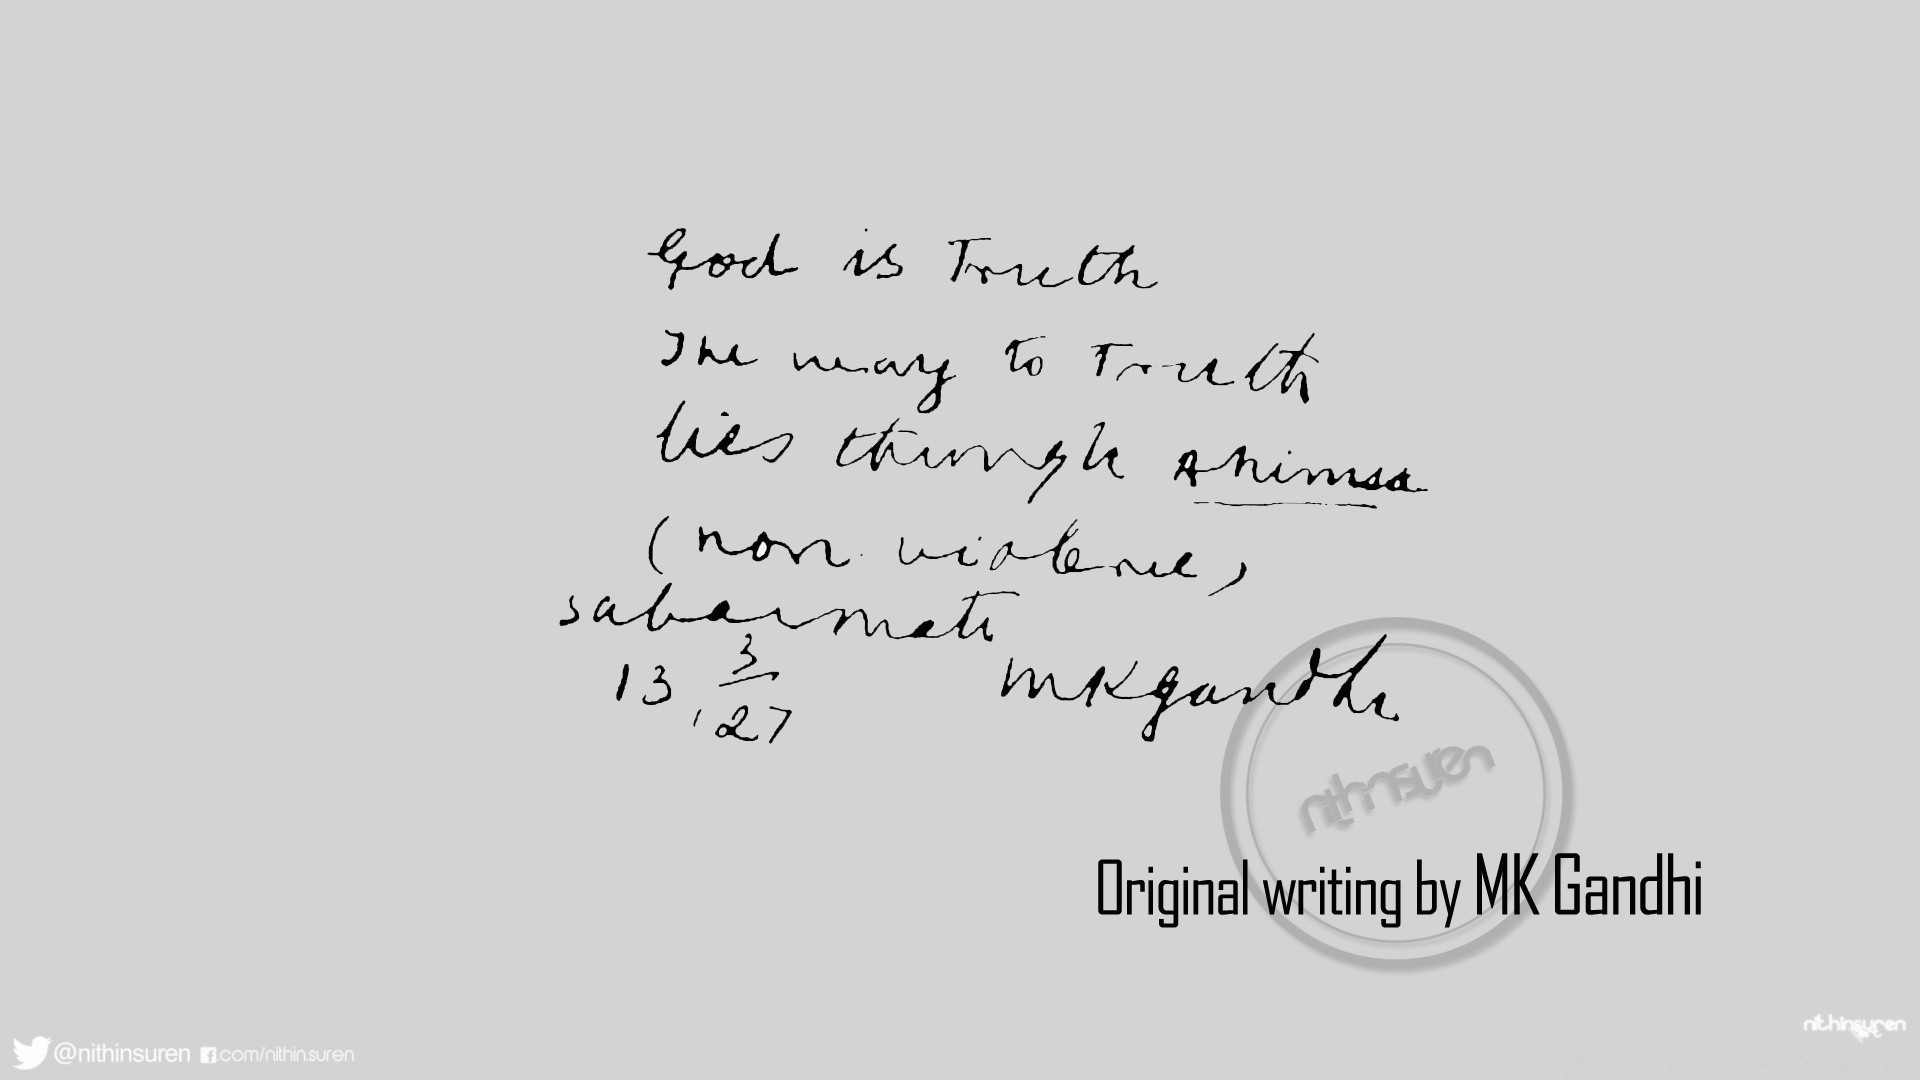 God is Truth
The way to Truth
lies through Ahimsa
(non violence)
Sabarmati
13, 3/27
MKGandhi
nithinsuren
Original writing by MK Gandhi
@nithinsuren f.com/nithin.suren
nithinsuren